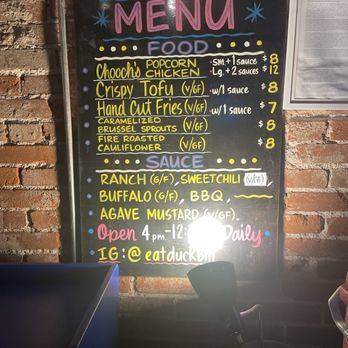 MENU
FOOD
Chooch's POPCORN CHICKEN · Sm + 1 sauce $8
· Lg. + 2 sauces $12
Crispy Tofu (V/GF) · w/1 sauce $8
Hand Cut Fries (V/GF) · w/1 sauce $7
CARAMELIZED
BRUSSEL SPROUTS (V/GF) $8
FIRE ROASTED
CAULIFLOWER (V/GF) $8
SAUCE
RANCH (G/F), SWEETCHILI (V/GF)
BUFFALO (G/F), BBQ,
· AGAVE MUSTARD (V/GF).
Open 4pm-12 Daily
IG: @eatduckbill